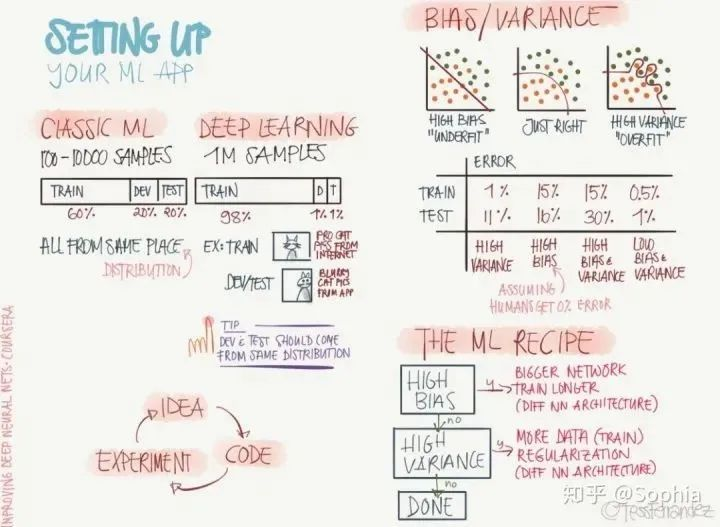 SETTING UP
YOUR ML APP
CLASSIC ML
100-10000 SAMPLES
TRAIN DEV TEST
60% 20% 20%
ALL FROM SAME PLACE
DISTRIBUTION
DEEP LEARNING
1M SAMPLES
TRAIN D T
98% 1% 1%
EX: TRAIN
PRO CAT
PICS FROM
INTERNET
DEV/TEST
BLURRY
CAT PICS
FROM APP
TIP
DEV & TEST SHOULD COME
FROM SAME DISTRIBUTION
IDEA
CODE
EXPERIMENT
IMPROVING DEEP NEURAL NETS · COURSERA
BIAS/VARIANCE
HIGH BIAS
"UNDERFIT"
JUST RIGHT
HIGH VARIANCE
"OVERFIT"
ERROR
TRAIN 1% 15% 15% 0.5%
TEST 11% 16% 30% 1%
HIGH
VARIANCE
HIGH
BIAS
HIGH
BIAS &
VARIANCE
LOW
BIAS &
VARIANCE
ASSUMING
HUMANS GET 0% ERROR
THE ML RECIPE
HIGH
BIAS
Y
BIGGER NETWORK
TRAIN LONGER
(DIFF NN ARCHITECTURE)
no
HIGH
VARIANCE
Y
MORE DATA (TRAIN)
REGULARIZATION
(DIFF NN ARCHITECTURE)
no
DONE
知乎 @Sophia
@TessFernandez